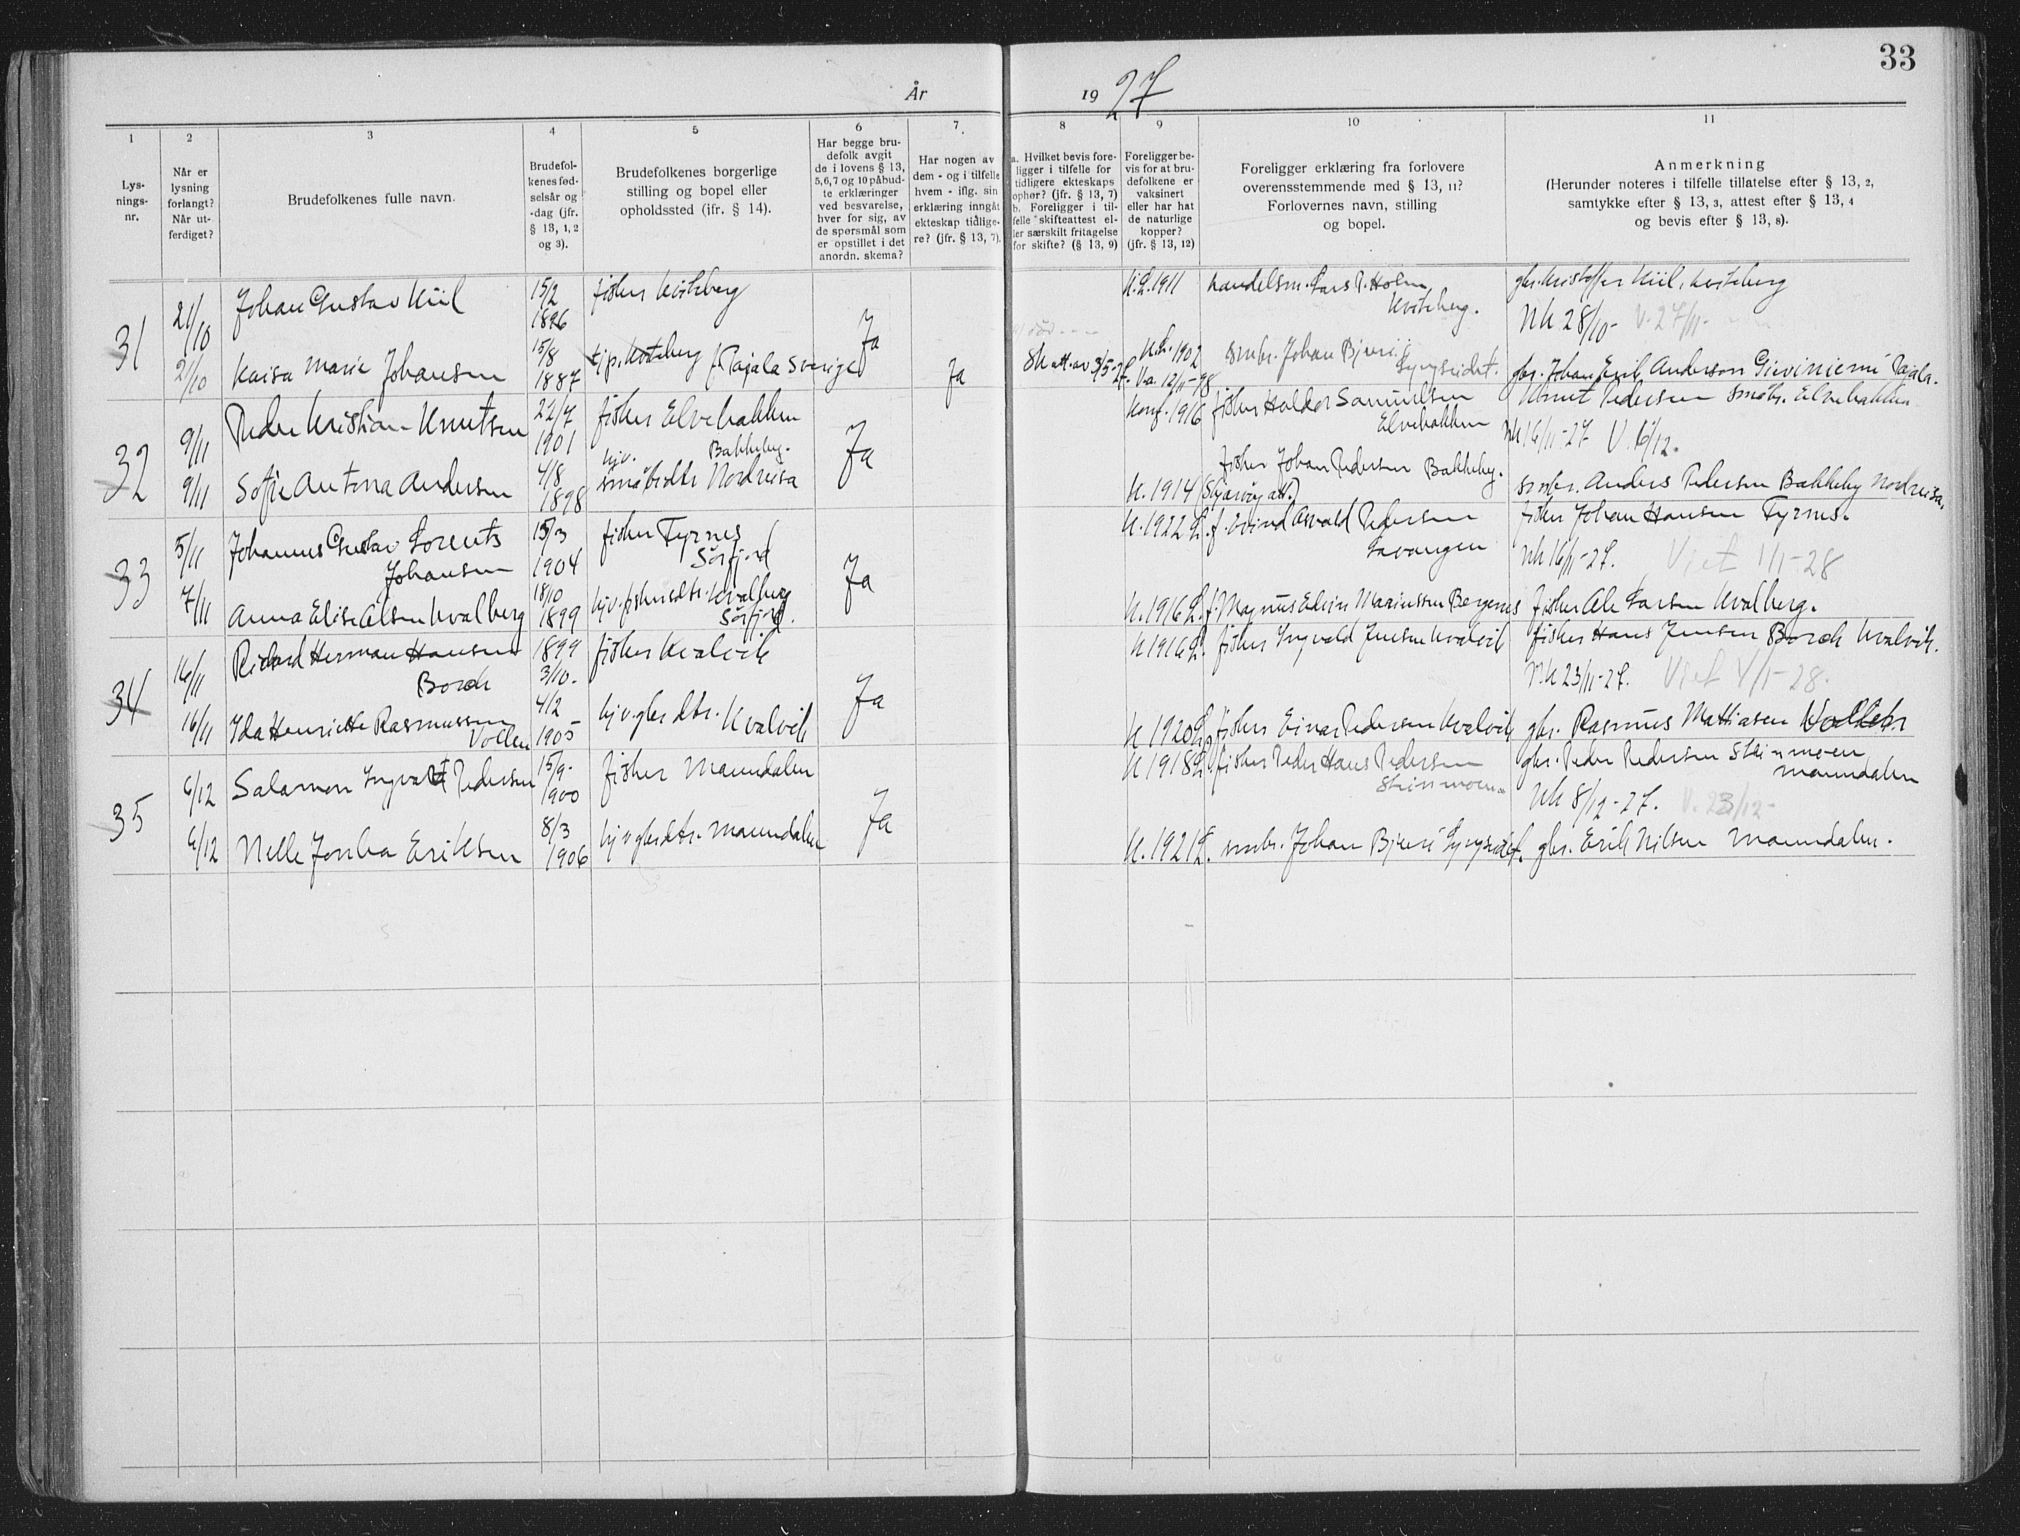 33
År 1927
1 2 3 4 5 6 7 8 9 10 11
Lys-
nings-
nr.
Når er
lysning
forlangt?
Når ut-
ferdiget?
Brudefolkenes fulle navn.
Brudefol-
kenes fød-
selsår og
-dag (jfr.
§ 13, 1, 2
og 3).
Brudefolkenes borgerlige
stilling og bopel eller
opholdssted (ifr. § 14).
Har begge bru-
defolk avgit
de i lovens § 13,
5,6,7 og 10 påbud-
te erklæringer
ved besvarelse,
hver for sig, av
de spørsmål som
er opstillet i det
anordn. skema?
Har nogen av
dem - og i tilfelle
hvem - iflg. sin
erklæring inngåt
ekteskap tidlige-
re? (jfr. § 13, 7).
a. Hvilket bevis fore-
ligger i tilfelle for
tidligere ekteskaps
ophør? (jfr. § 13, 7)
b. Foreligger i til-
felle skifteattest el-
ler særskilt fritagelse
for skifte? (§ 13, 9)
Foreligger be-
vis for at bru-
defolkene er
vaksinert
eller har hat
de naturlige
kopper?
(jfr. § 13, 12)
Foreligger erklæring fra forlovere
overensstemmende med § 13, 11?
Forlovernes navn, stilling
og bopel.
Anmerkning
(Herunder noteres i tilfelle tillatelse efter § 13, 2,
samtykke efter § 13, 3, attest efter § 13, 4
og bevis efter § 13, 8).
31
21/10 Johan Gustav Kiil 15/2 1896 fisker Kviteberg Ja K.L. 1911 handelsm. Lars P. Holm Kviteberg. gbr. Kristoffer Kiil, Kviteberg
Nk 28/10- V. 27/11-
21/10 Kaisa Marie Johansen 15/8 1887 tjp. Kviteberg f. Pajala Sverige Ja Sk att. av 3/5-27. K.L. 1902 Va. 12/11-98 smbr. Johan Bjerri Lyngseidet. gbr. Johan Erik Anderson Pajala.
32
9/11 Peder Kristian Knutsen 22/7 1901 fisker Elvebakken Ja Konf. 1916 fisker Haldor Samuelsen Elvebakken Knut Pedersen småbr. Elvebakken
Nk 16/11-27 V. 6/12.
9/11 Sofie Antona Andersen 4/8 1898 hjv. småbrdtr. Bakkeby. Nordreisa K. 1914 (Skjærvøy att.) fisker Johan Pedersen Bakkeby. smbr. Anders Pedersen Bakkeby Nordreisa.
33
5/11 Johannes Gustav Lorents Johansen 15/3 1904 fisker Tyrnes Sørfjord Ja K. 1922 L. f. Eivind Asvald Pedersen Lavangen fisker Johan Hansen Tyrnes.
Nk 16/11-27. Viet 1/1-28
7/11 Anna Elise Alsen Kvalberg 18/10 1899 hjv. fiskerdtr. Kvalberg Sørfjord. K. 1916 L. f. Magnus Edvin Mariussen Bergenes fisker Ale Larsen Kvalberg.
34
16/11 Rickard Herman Hansen Borch 1899 3/10. fisker Kvalvik Ja K 1916 L. fisker Ingvald Jensen Kvalvik fisker Hans Jensen Borch Kvalvik.
N.K 23/11-27. Viet 4/1-28.
16/11 Ida Henriette Rasmussen Vollen 4/2 1905 hjv. gbrdtr. Kvalvik K 1920 L. fisker Einar Pedersen Kvalvik gbr. Rasmus Mattiasen
35
6/12 Salamon Ingvart Pedersen 15/9. 1900 fisher Manndalen Ja K 1918 L. fisker Peder Hans Pedersen Steinmoen. gbr. Peder Pedersen Steinmoen Manndalen
Nk 8/12-27. V. 23/12-
6/12 Nelle Jonba Eriksen 8/3 1906 hjv gbrdtr. Manndalen K. 1921 L. smbr. Johan Bjerri Lyngseidet. gbr. Erik Nilsen Manndalen.